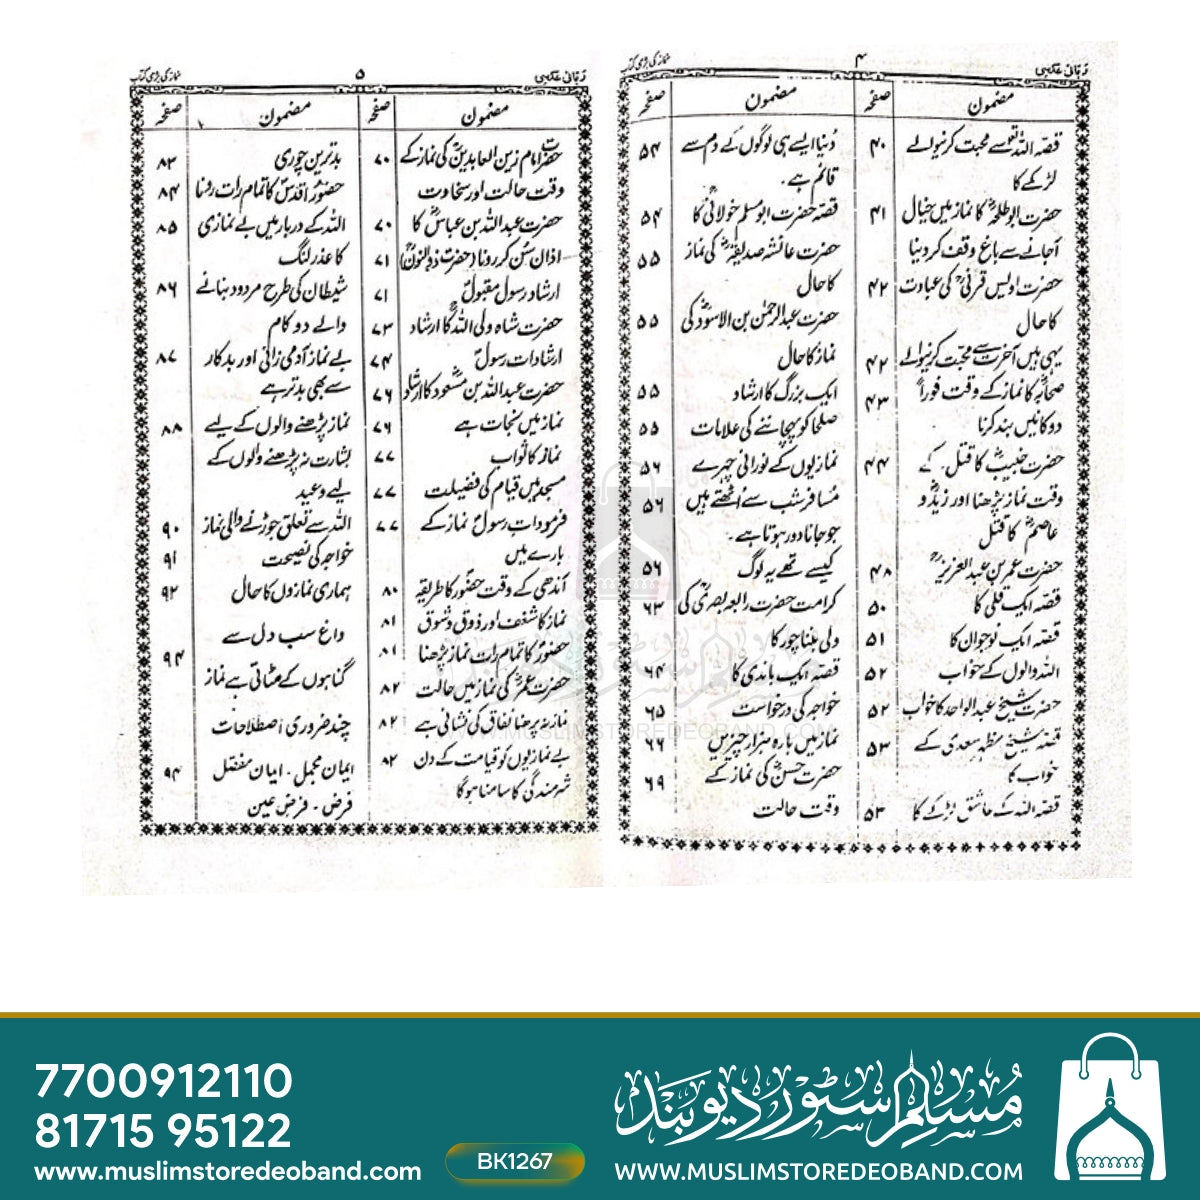 ربانی بکڈپو
۴
نماز کی بڑی کتاب
مضمون
صفحہ
قصہ اللہ تعالیٰ سے محبت کرنیوالے
۴۰
لڑکے کا
حضرت ابوطلحہؓ کا نماز میں خیال
۴۱
آجانے سے باغ وقف کر دینا
حضرت اویس قرنیؒ کی عبادت
۴۲
کا حال
یہی ہیں آخرت سے محبت کرنیوالے
۴۲
صحابہؓ کا نماز کے وقت فوراً
۴۳
دوکانیں بند کرنا
حضرت خبیبؓ کا قتل کے
۴۴
وقت نماز پڑھنا اور زیدؓ و
عاصمؓ کا قتل
حضرت عمر بن عبدالعزیزؒ
۴۸
قصہ ایک قلی کا
۵۰
قصہ ایک نوجوان کا
۵۱
اللہ والوں کے خواب
۵۲
حضرت شیخ عبدالواحد کا خواب
۵۲
قصہ شیخ مظہر سعدی کے
۵۳
خواب کا
قصہ اللہ کے عاشق لڑکے کا
۵۳
مضمون
صفحہ
دُنیا ایسے ہی لوگوں کے دم سے
۵۴
قائم ہے۔
قصہ حضرت ابو مسلم خولانیؒ کا
۵۴
حضرت عائشہ صدیقہؓ کی نماز
۵۵
کا حال
حضرت عبدالرحمٰن بن الاسودؒ کی
۵۵
نماز کا حال
ایک بزرگ کا ارشاد
۵۵
صلحا کو پہچاننے کی علامات
۵۵
نمازیوں کے نورانی چہرے
۵۶
مسافر شب سے اُٹھتے ہیں
۵۶
جو جانا دور ہوتا ہے۔
کیسے تھے یہ لوگ
۵۶
کرامت حضرت رابعہ بصریؒ کی
۶۳
ولی بننا چور کا
قصہ ایک باندی کا
۶۴
خواجہ کی درخواست
۶۵
نماز میں بارہ ہزار چیزیں
۶۶
حضرت حسنؓ کی نماز کے
۶۹
وقت حالت
ربانی بکڈپو
۵
نماز کی بڑی کتاب
مضمون
صفحہ
حضرت امام زین العابدینؒ کی نماز کے
۷۰
وقت حالت اور سخاوت
حضرت عبداللہ بن عباسؓ کا
۷۰
اذان سُن کر رونا (حضرت ذوالنونؒ)
۷۱
ارشاد رسول مقبولؐ
۷۱
حضرت شاہ ولی اللہؒ کا ارشاد
۷۳
ارشادات رسولؐ
۷۴
حضرت عبداللہ بن مسعود کا ارشاد
۷۶
نماز میں نجات ہے
۷۶
نماز کا ثواب
۷۷
مسجد میں قیام کی فضیلت
۷۷
فرمودات رسولؐ نماز کے
۷۷
بارے میں
آندھی کے وقت حضورؐ کا طریقہ
۸۰
نماز کا شغف اور ذوق و شوق
۸۱
حضورؐ کا تمام رات نماز پڑھنا
۸۱
حضرت عمرؓ کی نماز میں حالت
۸۲
نماز نہ پڑھنا نفاق کی نشانی ہے
۸۲
بے نمازیوں کو قیامت کے دن
۸۲
شرمندگی کا سامنا ہوگا
مضمون
صفحہ
بدترین چوری
۸۳
حضورؐ اقدس کا تمام رات رونا
۸۴
اللہ کے دربار میں بے نمازی
۸۵
کا عذر لنگ
شیطان کی طرح مردود بنانے
۸۶
والے دو کام
بے نماز آدمی زانی اور بدکار
۸۷
سے بھی بدتر ہے
نماز پڑھنے والوں کے لیے
۸۸
بشارت نہ پڑھنے والوں کے
لیے وعید
اللہ سے تعلق جوڑنے والی نماز
۹۰
خواجہ کی نصیحت
۹۱
ہماری نمازوں کا حال
۹۲
داغ سب دل سے
۹۴
گناہوں کے مٹاتی ہے نماز
چند ضروری اصطلاحات
ایمان مجمل۔ ایمان مفصل
۹۴
فرض۔ فرض عین
WWW.MUSLIMSTOREDEOBAND.COM
7700912110
81715 95122
www.muslimstoredeoband.com
BK1267
مسلم سٹور دیوبند
WWW.MUSLIMSTOREDEOBAND.COM